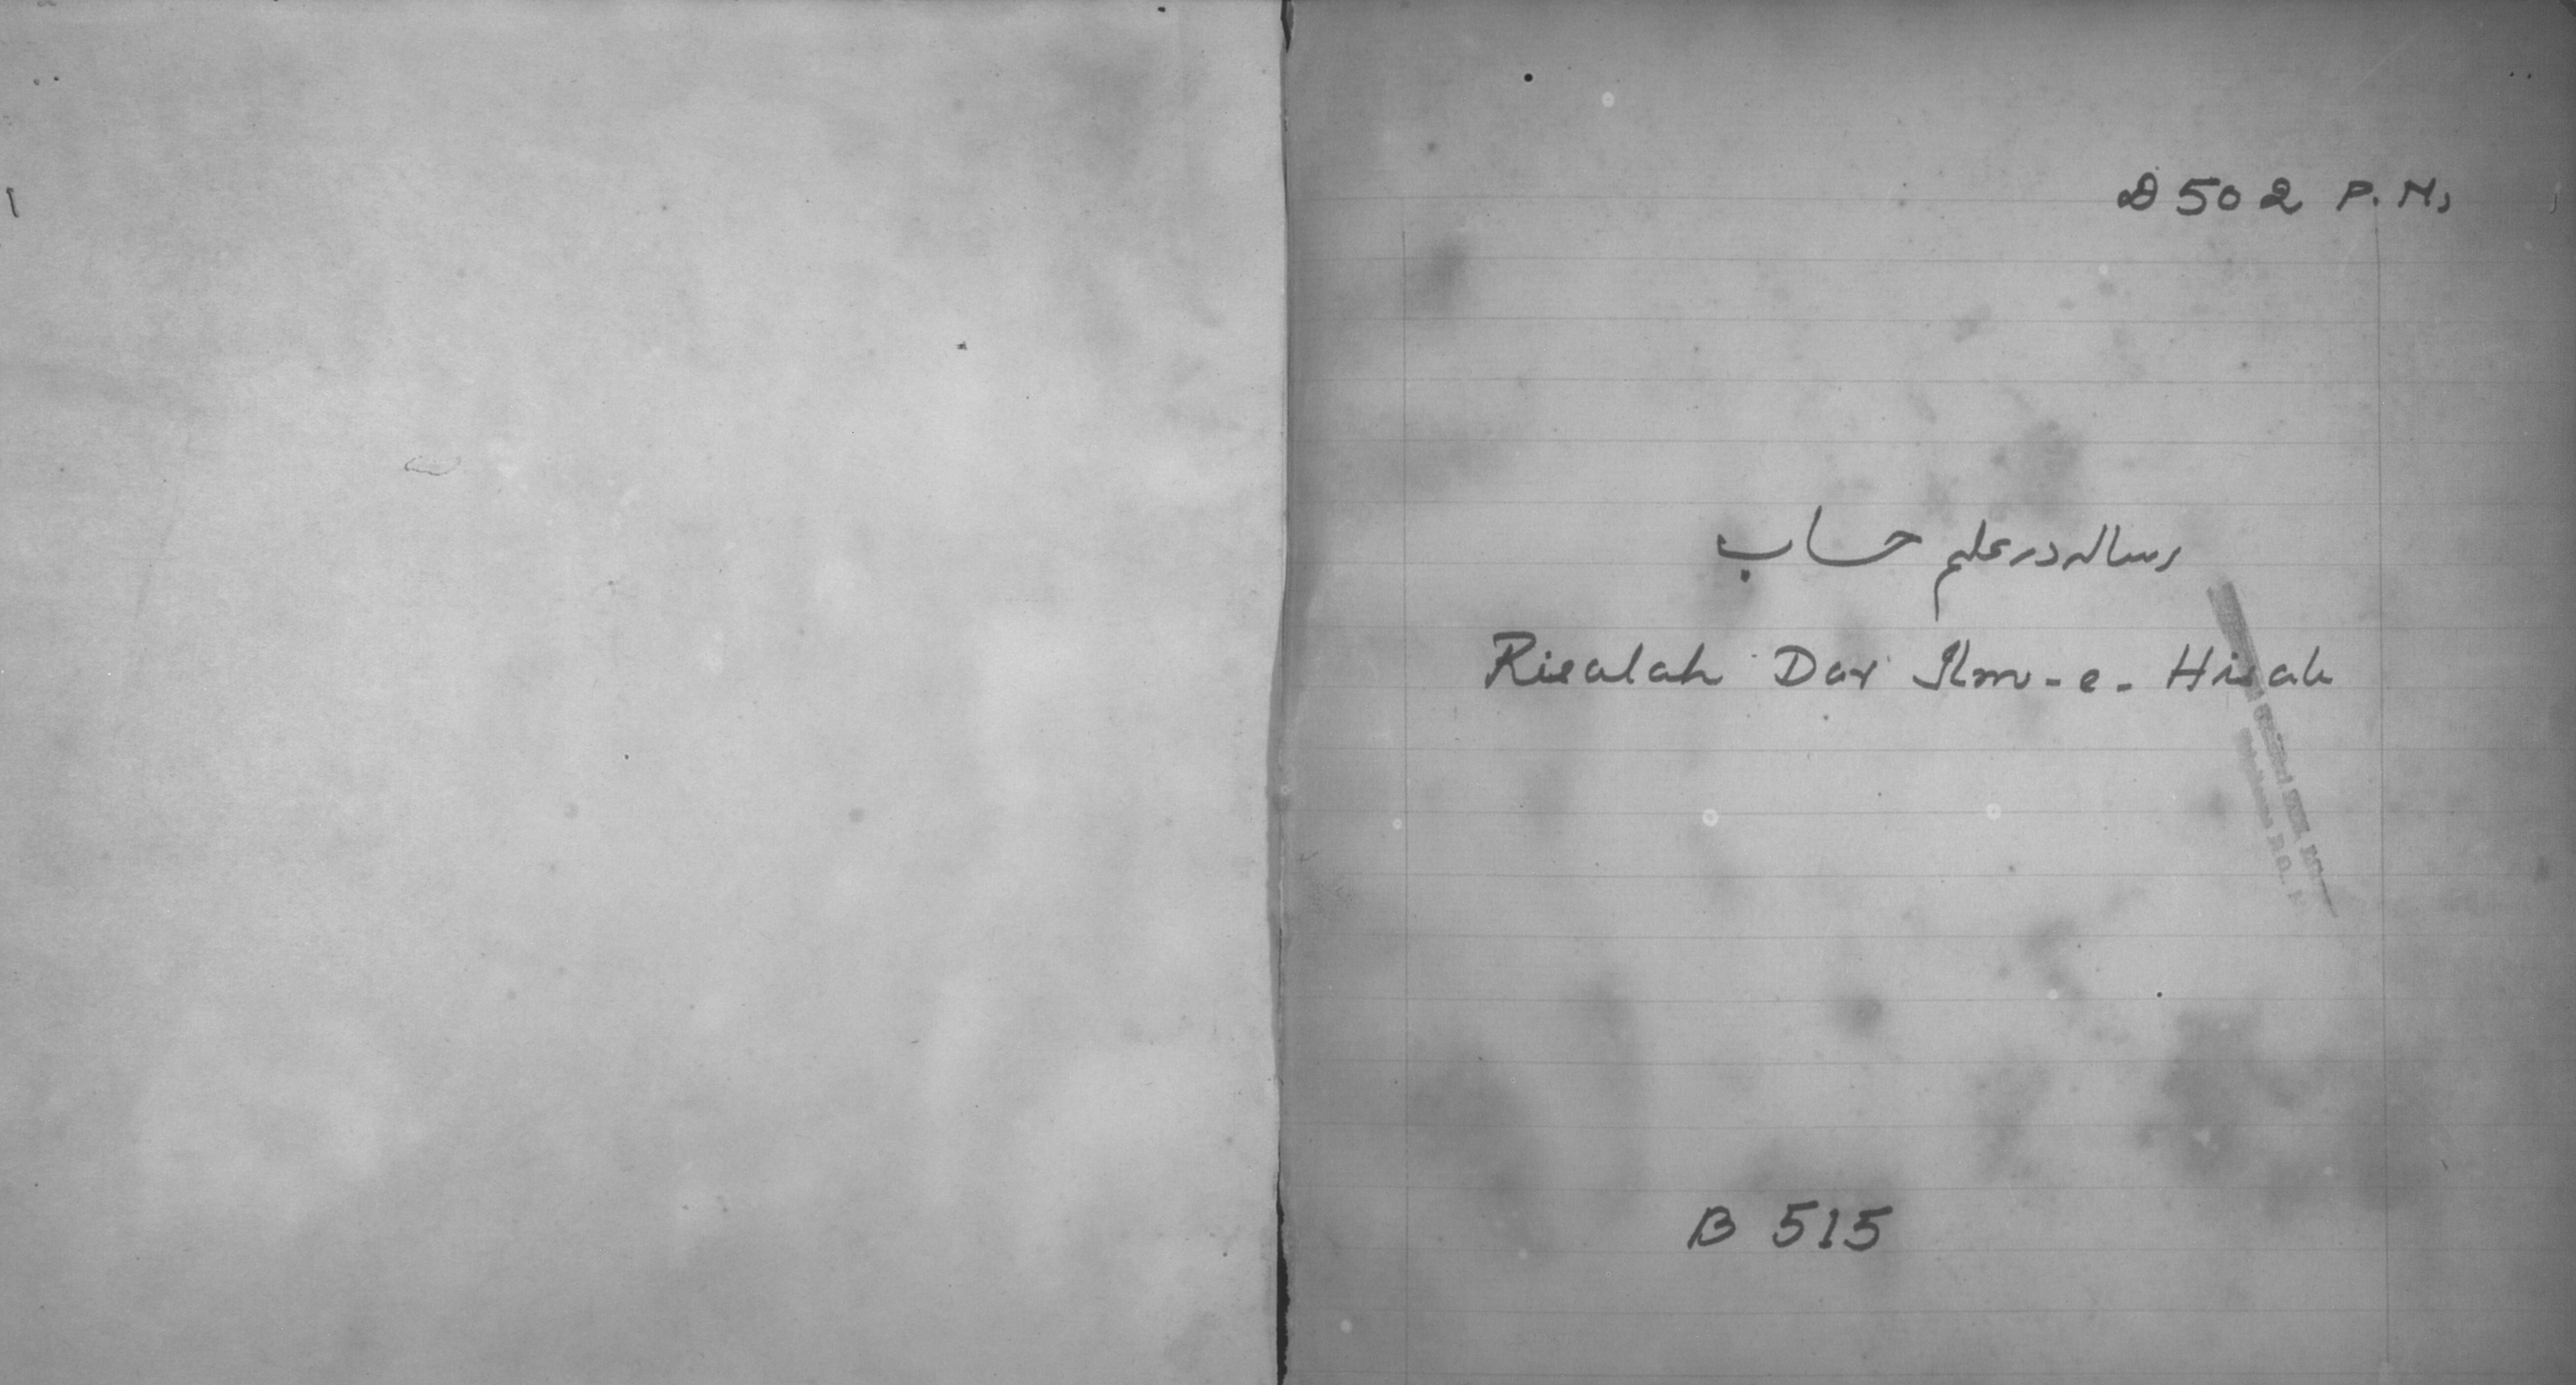 D 502 P.M.
رساله در علم حساب
Risalah Dar Ilm-e-Hisab
B 515